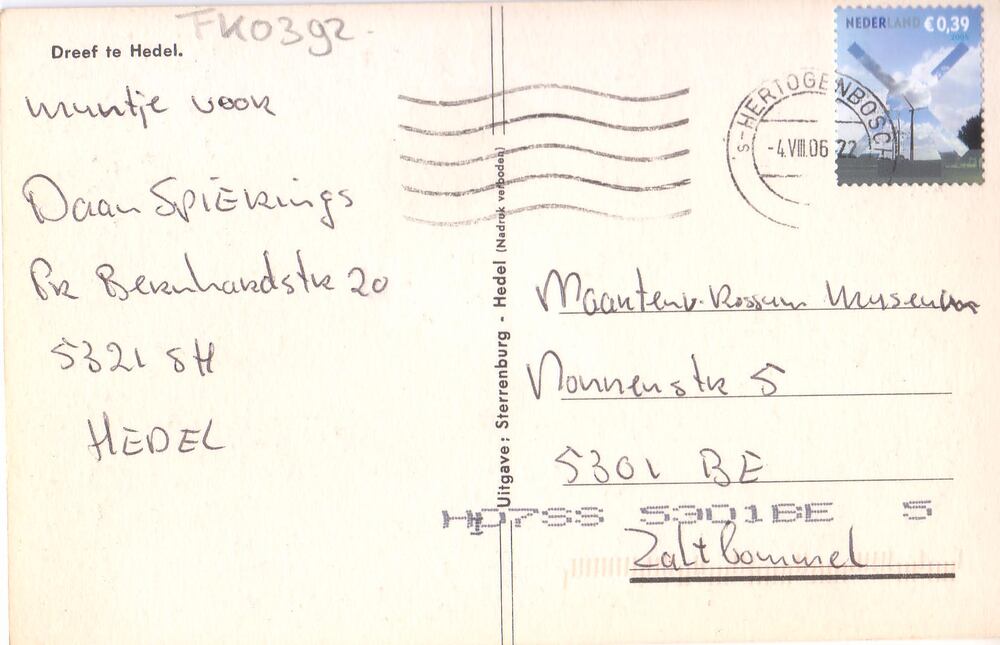 FK0392.
Dreef te Hedel.
muntje voor
Daan SPIERings
Pr Bernhardstr 20
5321 SH
HEDEL
Uitgave: Sterrenburg - Hedel (Nadruk verboden)
NEDERLAND €0,39
2005
's-HERTOGENBOSCH
-4.VIII.06 22
Maarten v. Rossum Museum
Nonnenstr 5
5301 BE
5301BE 5
Zaltbommel